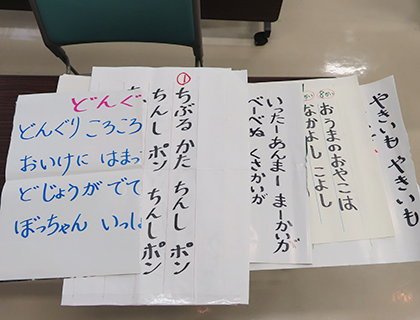 どんぐ
どんぐり ころころ
おいけに はまっ
どじょうが でて
ぼっちゃん いっし
①
ちぶる かた ちんし ポン
ちんし ポン ちんし ポン
いったーあんまー まーかいが
べーべぬ くさかいが
8か
おうまのおやこは
なかよし こよし
やきいも やきいも